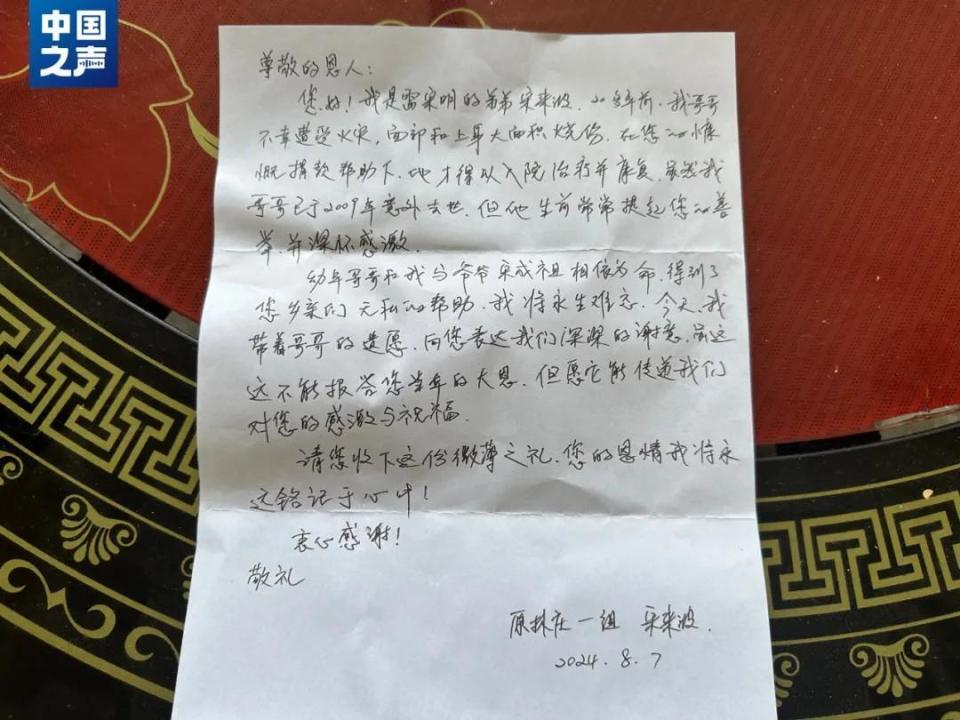 中国
之声
尊敬的恩人：
您好！我是雷宋明的弟弟宋来波，20多年前，我哥哥
不幸遭受火灾，面部和上身大面积烧伤，在您的慷
慨捐款帮助下，他才得以入院治疗并康复，虽然我
哥哥已于2009年意外去世，但他生前常常提起您的善
举，并深怀感激。
幼年哥哥和我与爷爷宋成祖相依为命，得到了
您乡亲们无私的帮助，我将永生难忘，今天，我
带着哥哥的遗愿，向您表达我们深深的谢意，虽
这不能报答您当年的大恩，但愿它能传递我们
对您的感激与祝福。
请您收下这份微薄之礼，您的恩情我将永
远铭记于心中！
衷心感谢！
敬礼
原林庄一组 宋来波
2024.8.7